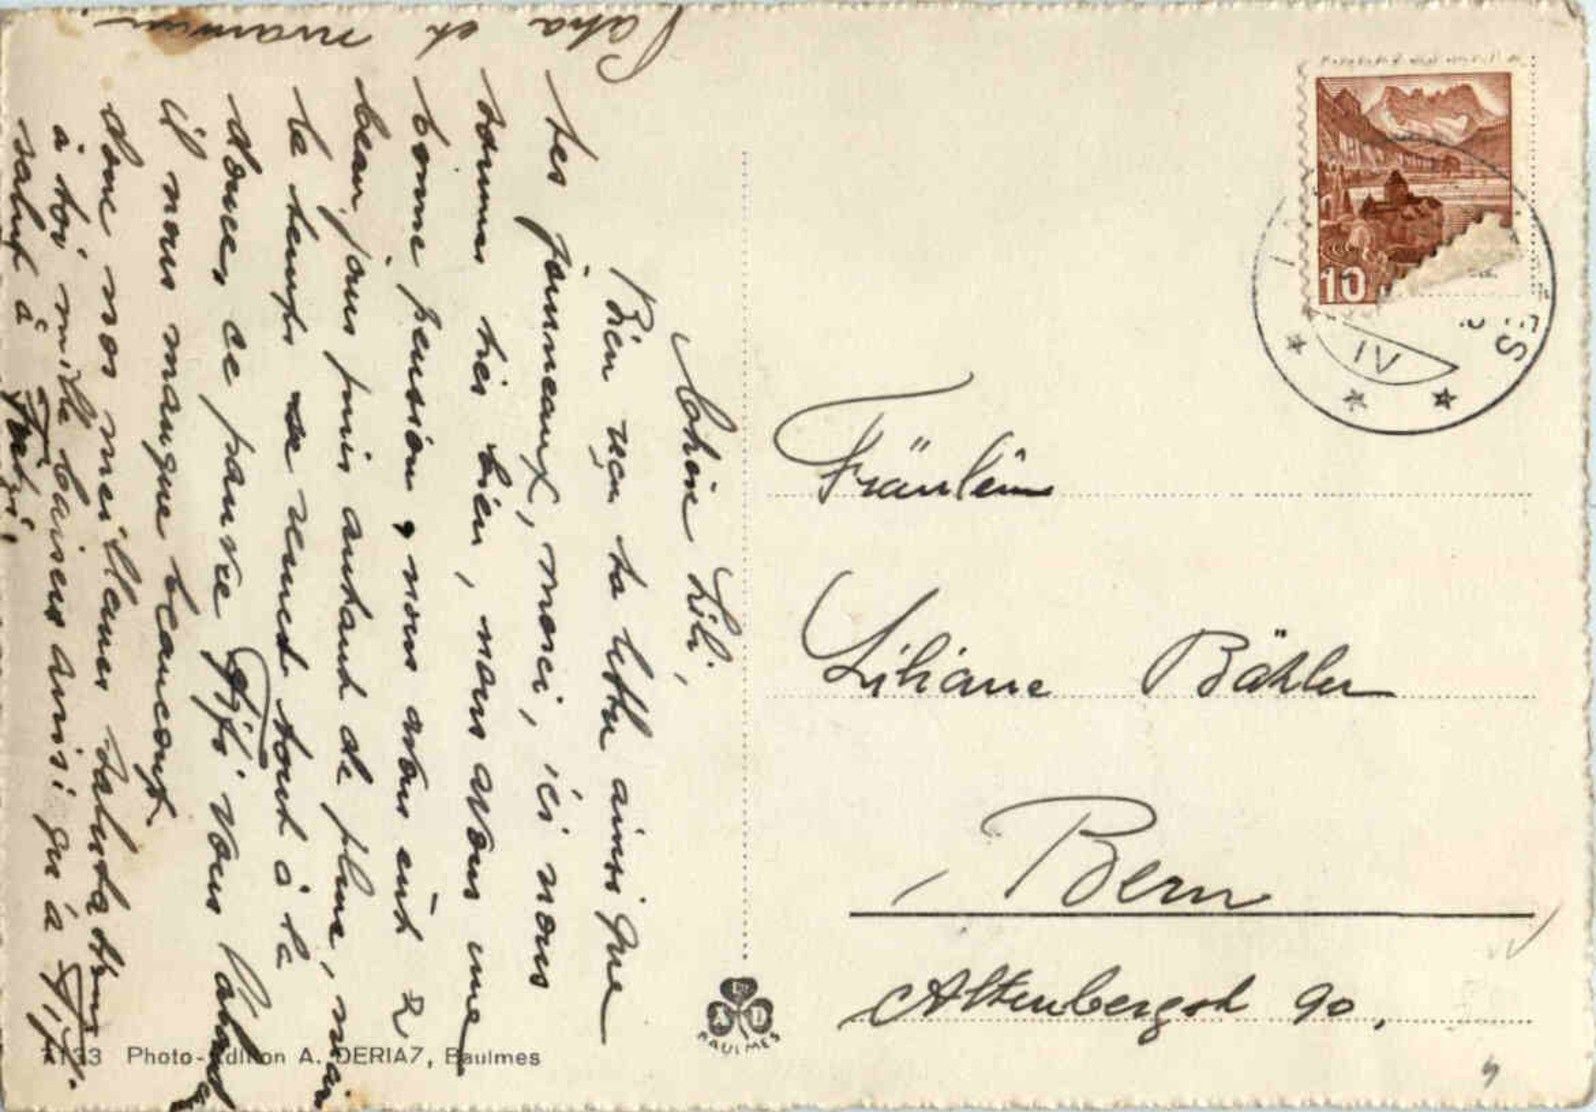 Chère Lili,
Bien reçu ta lettre ainsi que
tes journeaux, merci, ici nous
sommes très bien, nous avons une
bonne pension, nous avons eût 2
beau jours puis autant de pluie, mais
le temps se remet tout à la
douce, ce pauvre Fifi vous l'aimez
il nous manque beaucoup.
donc nos meilleures salutations
à toi mille baisers ainsi qu'à Fifi.
salut à
Papa et maman
Fräulein
Liliane Bähler
Bern
Altenbergstr 90.
10
VI
ES
1133 Photo-Edition A. DERIAZ, Baulmes
BAULMES